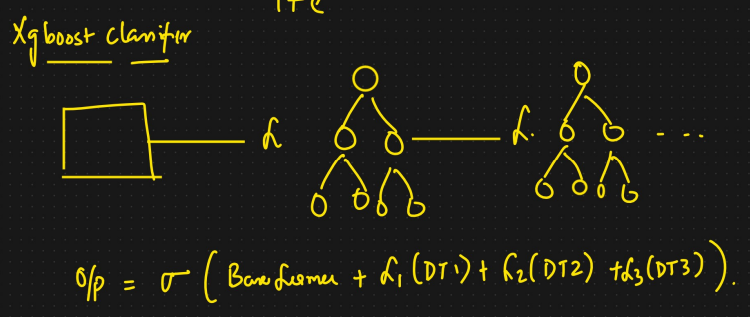 Xgboost Classifier
α α. ...
O/p = σ ( Base Learner + α₁ (DT1) + α₂ (DT2) + α₃ (DT3) ).